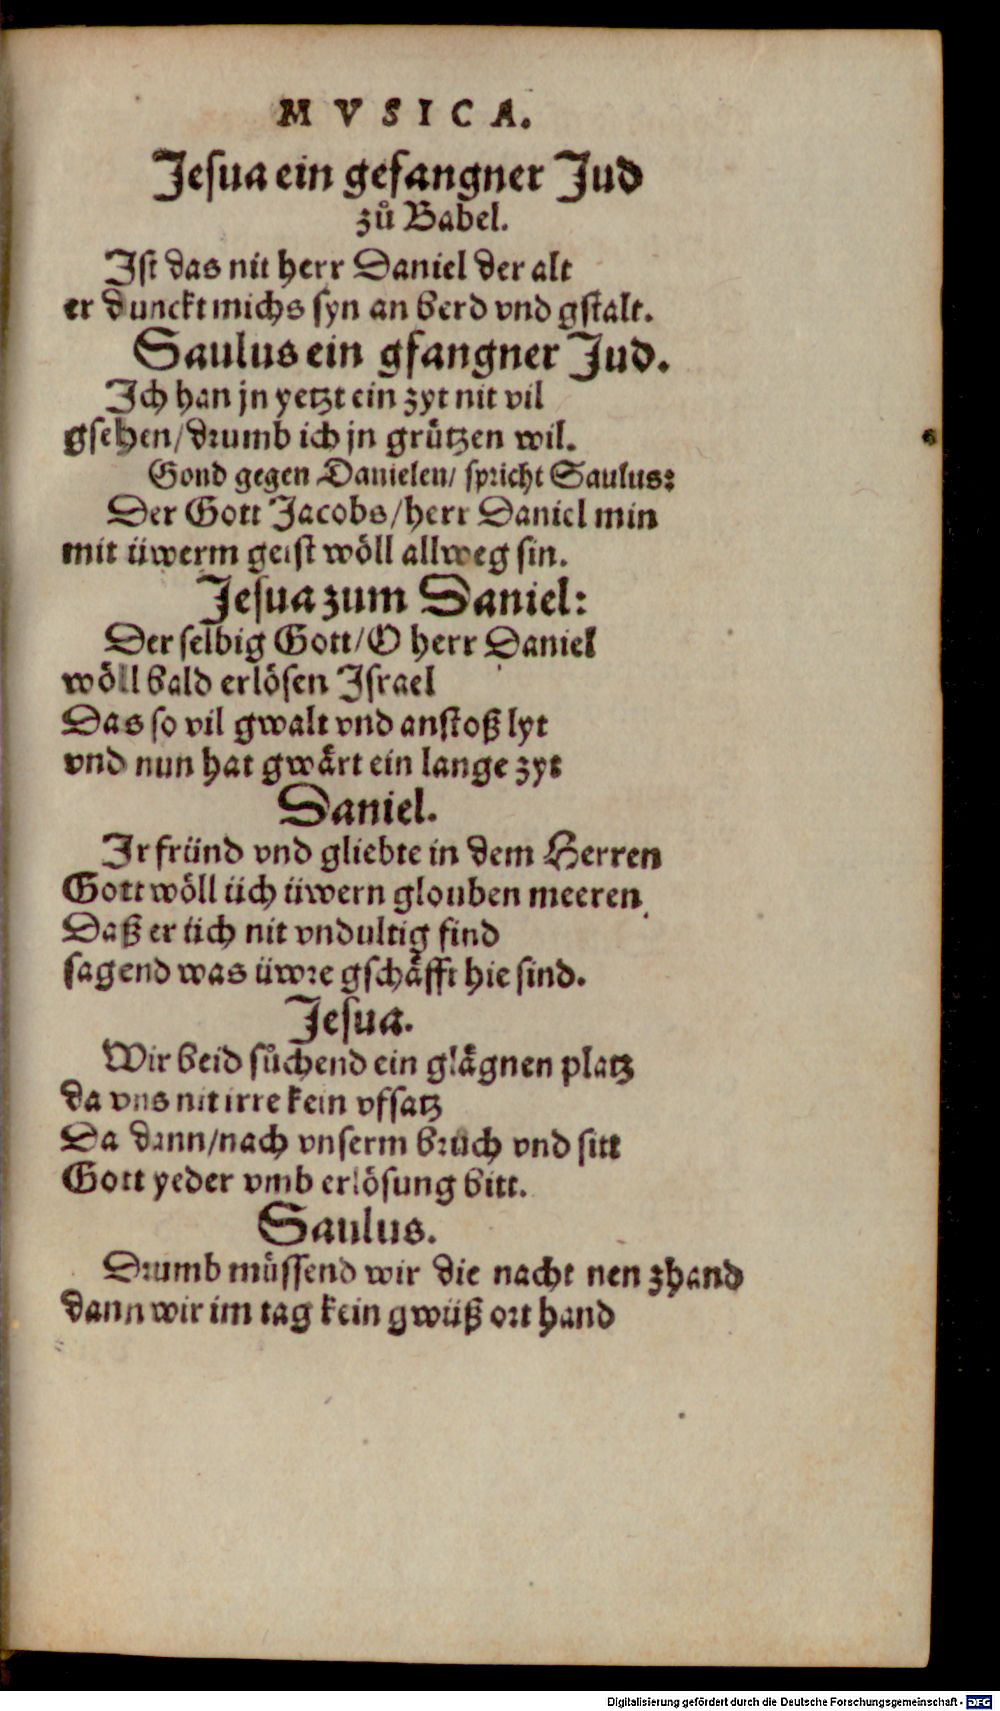 MVSICA.
Jesua ein gefangner Jud
zů Babel.
Ist das nit herr Daniel der alt
er dunckt michs syn an berd vnd gstalt.
Saulus ein gfangner Jud.
Ich han jn yetzt ein zyt nit vil
gsehen/drumb ich jn grützen wil.
Gond gegen Danielen/ spricht Saulus:
Der Gott Jacobs/herr Daniel min
mit üwerm geist wöll allweg sin.
Jesua zum Daniel:
Der selbig Gott/O herr Daniel
wöll bald erlösen Israel
Das so vil gwalt vnd anstoß lyt
vnd nun hat gwärt ein lange zyt
Daniel.
Ir fründ vnd gliebte in dem Herren
Gott wöll üch üwern glouben meeren
Daß er üch nit vndultig find
sagend was üwre gschäfft hie sind.
Jesua.
Wir beid sůchend ein glägnen platz
da vns nit irre kein vfsatz
Da dann/nach vnserm bruch vnd sitt
Gott yeder vmb erlösung bitt.
Saulus.
Drumb müssend wir die nacht nen zhand
dann wir im tag kein gwüß ort hand
Digitalisierung gefördert durch die Deutsche Forschungsgemeinschaft - DFG